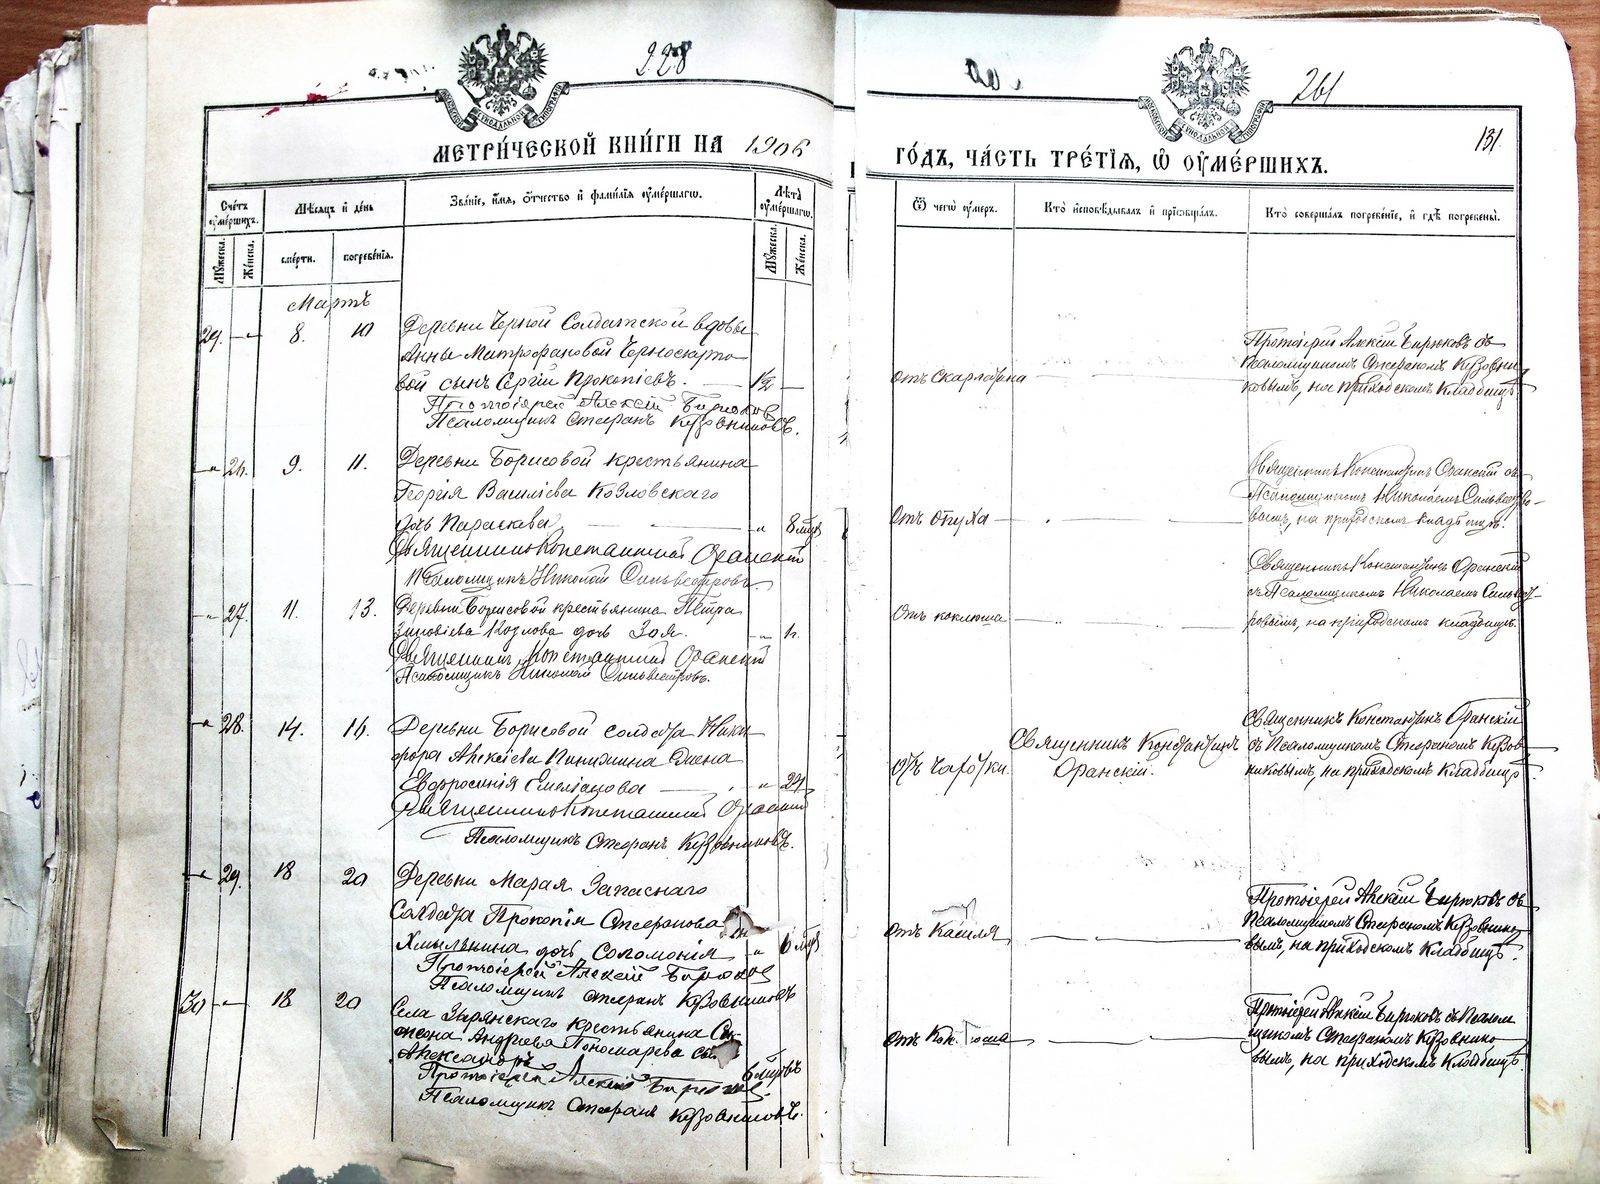 228
МЕТРИ́ЧЕСКОЙ КНИ́ГИ НА 1906
Сче́тъ оу҆ме́ршихъ.
Мѣ́сѧцъ и҆ де́нь
Зва́нїе, и҆́мѧ, ѻ҆́тчество и҆ фами́лїѧ оу҆ме́ршагѡ.
Лѣ́та оу҆ме́ршагѡ.
Мꙋ́жеска.
Же́нска.
сме́рти.
погребе́нїѧ.
Мꙋ́жеска.
Же́нска.
Мартъ
29. — 8. 10 Деревни Черной Солдатской вдовы
Анны Митрофановой Черноскуто-
вой сынъ Сергій Прокопіевъ. — 1½ —
Протоіерей Алексій Бирюковъ
Псаломщикъ Стефанъ Кузовниковъ.
26. 9. 11. Деревни Борисовой крестьянина
Георгія Василіева Козловскаго
дочь Параскева — 8 мцъ
Священникъ Константинъ Оранскій
Псаломщикъ Николай Сильвестровъ
27. 11. 13. Деревни Борисовой крестьянина Петра
Зиновіева Козлова дочь Зоя.
Священникъ Константинъ Оранскій
Псаломщикъ Николай Сильвестровъ.
28. 14. 16. Деревни Борисовой солдата Ники-
фора Алексіева жена
Евфросинія Емеліанова — 24
Священникъ Константинъ Оранскій
Псаломщикъ Стефанъ Кузовниковъ.
29. 18 20 Деревни Марая Запаснаго
Солдата Прокопія Стефанова
Хмылънина дочь Соломонія 6 мцъ
Протоіерей Алексій Бирюков
Псаломщикъ Стефанъ Кузовниковъ
30 — 18 20 Села Зырянскаго крестьянина Си-
меона Андреева Пономарева
Александръ 6
Протоіерей Алексій Бирюков
Псаломщикъ Стефанъ Кузовниковъ.
261
131.
ГО́ДЪ, ЧА́СТЬ ТРЕ́ТЇѦ, Ѡ҆ ОУ҆МЕ́РШИХЪ.
Ѿ чегѡ̀ оу҆́меръ.
Кто̀ и҆сповѣ́дывалъ и҆ прїѡбща́лъ.
Кто̀ соверша́лъ погребе́нїе, и҆ гдѣ̀ погребены̀.
Протоіерей Алексій Бирюковъ съ
Псаломщикомъ Стефаномъ Кузовни-
отъ скарлатина — ковымъ, на приходскомъ кладбищѣ.
Священникъ Константинъ Оранскій съ
Псаломщикомъ Николаемъ Сильвестро-
отъ опуха — вымъ, на приходскомъ кладбищѣ.
Священникъ Константинъ Оранскій
съ Псаломщикомъ Николаемъ Сильвест-
отъ коклюша — ровымъ, на приходскомъ кладбищѣ.
Священникъ Константинъ Оранскій
Священникъ Константинъ съ Псаломщикомъ Стефаномъ Кузов-
отъ чахотки. Оранскій. никовымъ, на приходскомъ кладбищѣ
Протоіерей Алексій Бирюковъ съ
Псаломщикомъ Стефаномъ Кузовнико-
отъ Кашля — вымъ, на приходскомъ кладбищѣ.
Протоіерей Алексій Бирюковъ съ Псалом-
щикомъ Стефаномъ Кузовнико-
отъ Коклюша — вымъ, на приходскомъ кладбищѣ.